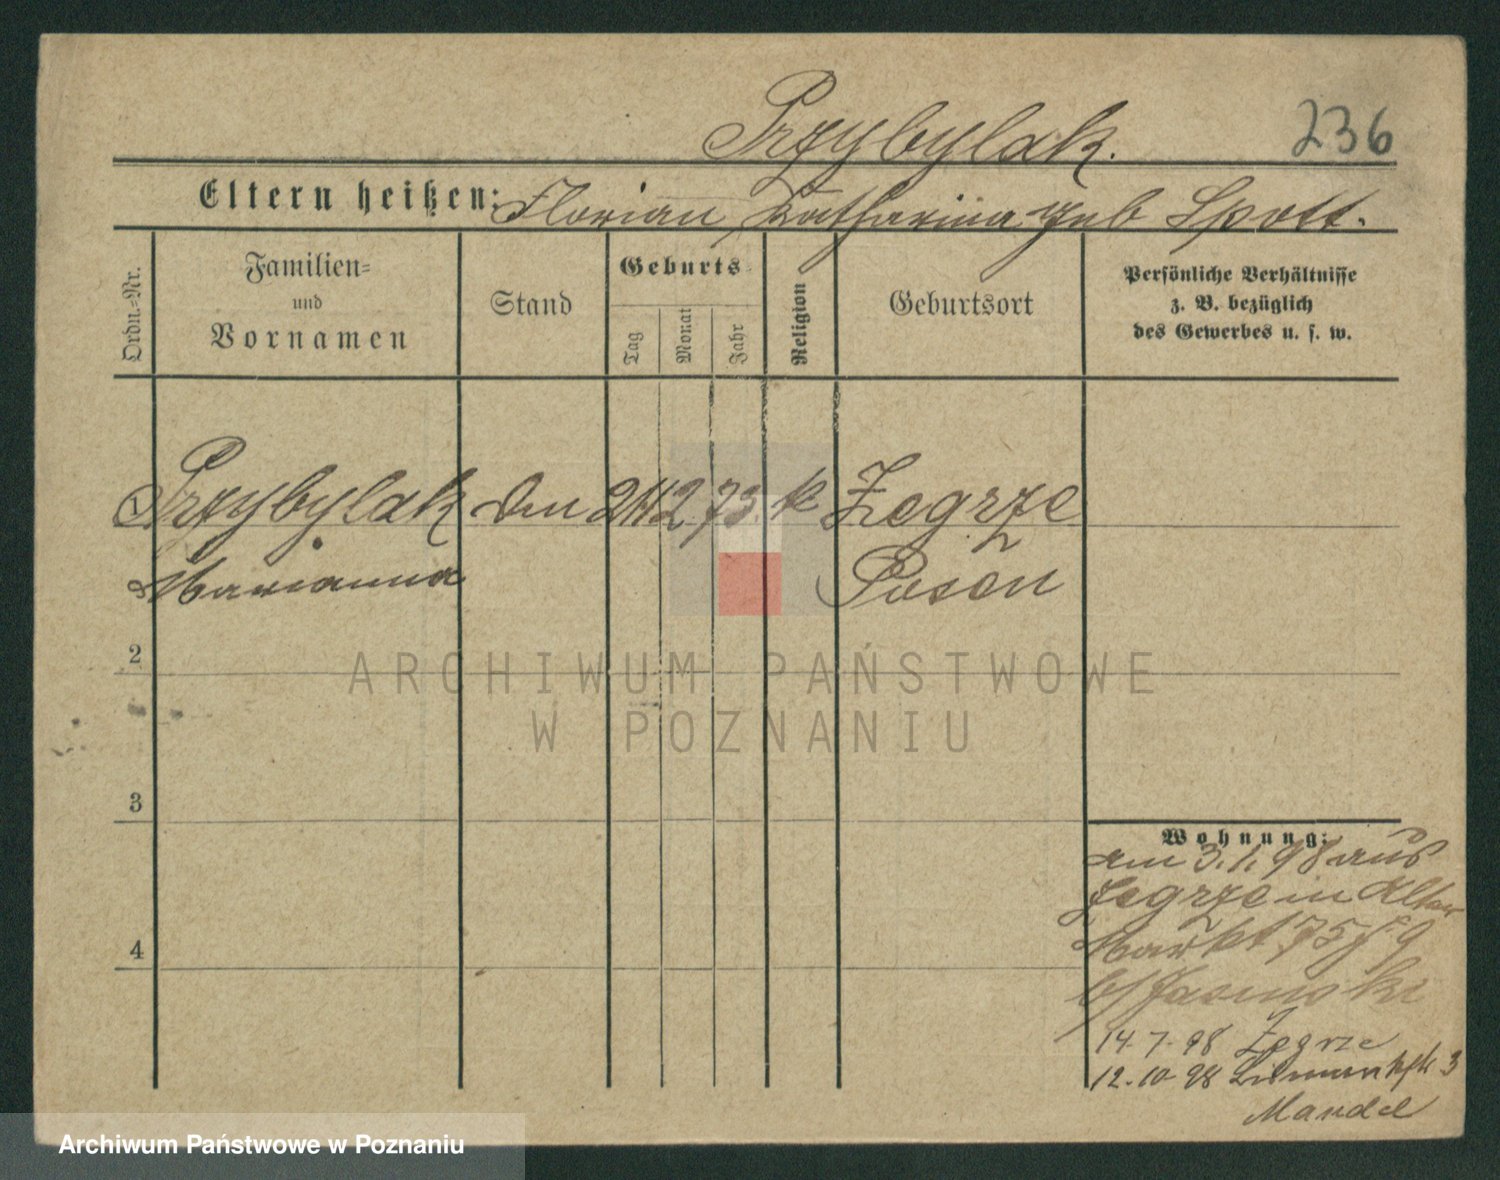 Przybylak.
236
Eltern heißen: Florian Katharina geb Spott.
Ordn.=Nr.
Familien=
und
Vornamen
Stand
Geburts=
Tag
Monat
Jahr
Religion
Geburtsort
Persönliche Verhältnisse
z. B. bezüglich
des Gewerbes u. s. w.
1
Przybylak
Marianna
24 12 73. k
Zegrze
Posen
2
3
4
Wohnung:
am 3.1.98 aus
Zegrze in Alter
Markt 75
b/ Jasinski
14.7.98 Zegrze
12.10.98 3
Mandel
ARCHIWUM PAŃSTWOWE
W POZNANIU
Archiwum Państwowe w Poznaniu